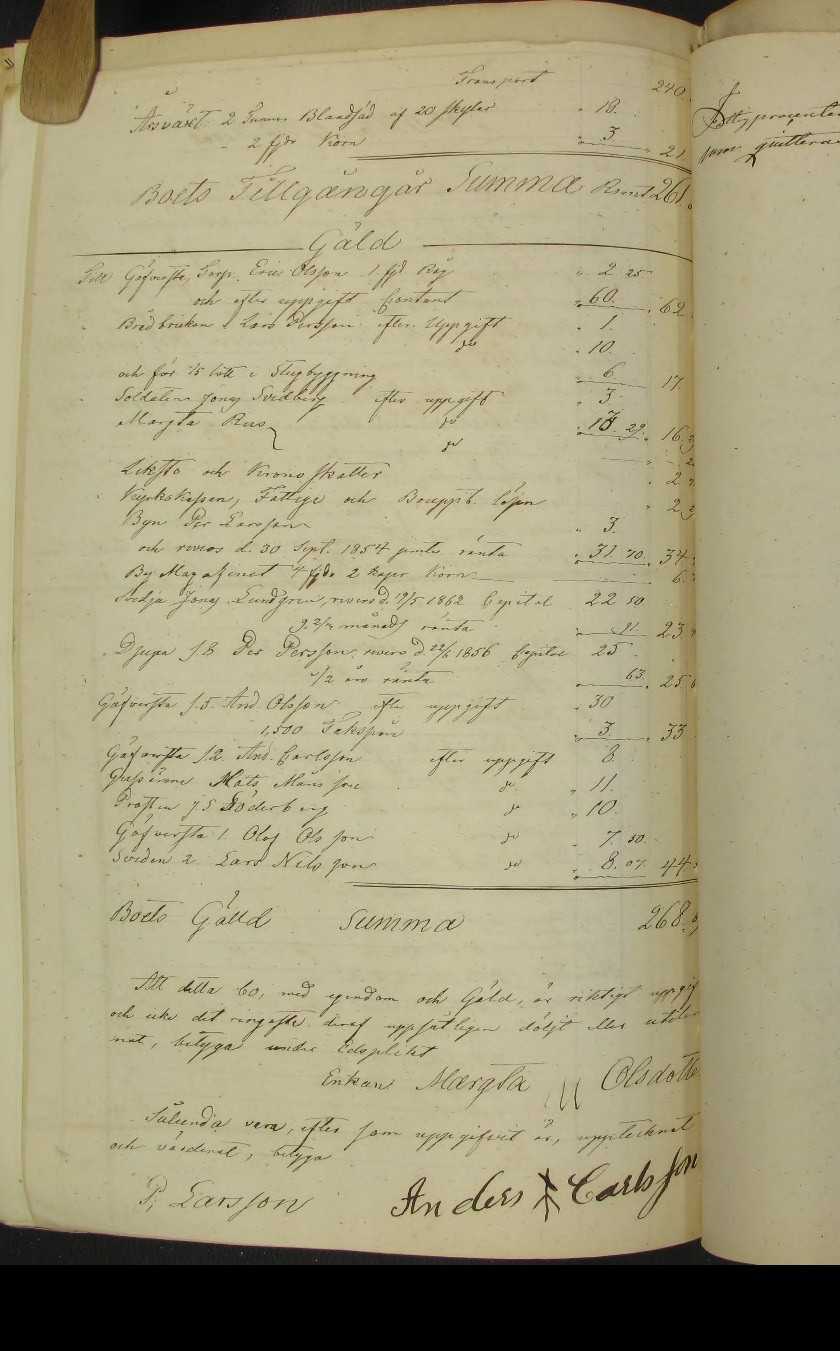 Transport 240
Årsväxt 2 Tunnor Blandsäd af 20 skylar " 18.
" 2 fjdr Korn " 3 " 21
Boets Tillgångar Summa Rmnt 261.
Gäld
Till Gäfversta, Eric Olsson 1 fjd Råg " 2 25
och efter uppgift Contant " 60. " 62
Lars Persson efter Uppgift " 1.
do " 10.
och för 1/5 lott i Stugbyggning " 6 " 17
Soldaten Jonas Svedberg efter uppgift " 3.
Margta Rus do 29. " 16
do
och Kronoskatter " 2
Kyrkokassan, Fattige och Bouppt. lösen " 2
Byn Per Larsson " 3.
och revers d. 30 Sept. 1854 jemte ränta " 31. 70. " 34
By Magasinet 4 fjdr 2 kapor Korn 6.
Svedja Jonas Lundgren, revers d. 19/5 1862 Capital 22 50
9 2/4 månads ränta " 91. " 23
Djupa 3 Per Persson, revers d. 22/6 1856 Capital 25
1/2 års ränta " 63. " 25
Gäfversta 5. And. Olsson efter uppgift " 30
1,500 Takspån " 3. " 33
Gäfversta 2. And. Carlsson efter uppgift 8
Mats Månsson do " 11.
Prosten J S Söderberg do " 10.
Gäfversta 1. Olof Olsson do " 7. 50.
Sveden 2 Lars Nilsson do " 8. 07. 44
Boets Gälld Summa 268.
Att detta bo, med egendom och Gäld, är riktigt uppgif
och icke det ringaste deraf uppsåtligen döljt eller utelem
nat, betyga under Edsplikt
Enkan Margta Olsdotte
Sålunda vara, efter som uppgifvit är, upptecknat
och värderat, betyga
P. Larsson Anders Carlsson